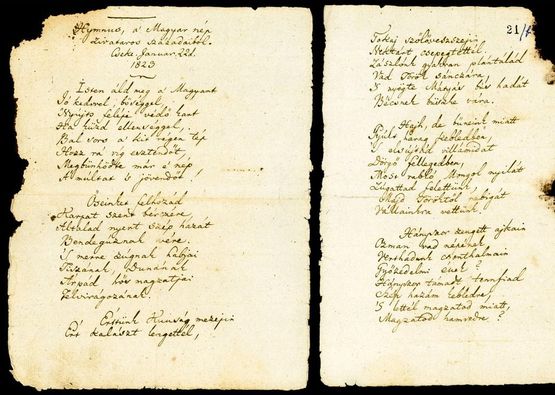 Hymnus, a' Magyar nép
zivataros századaiból.
Cseke. Januar. 22d.
1823
Isten áld meg a' Magyart
Jó kedvvel, bőséggel,
Nyújts feléje védő kart
Ha küzd ellenséggel;
Bal sors a' kit régen tép
Hozz rá víg esztendőt,
Megbünhödte már e' nép
A' multat 's jövendőt!
Őseinket felhozád
Kárpát szent bérczére,
Általad nyert szép hazát
Bendegúznak vére,
'S merre zúgnak habjai
Tiszának, Dunának,
Árpád hős magzatjai
Felvirágozának.
Értünk Kunság mezején
Ért kalászt lengettél,
21/
Tokaj szőlővesszején
Nektárt csepegtettél.
Zászlónk gyakran plántálád
Vad Török sánczára,
'S nyögte Mátyás bús hadát
Bécsnek büszke vára.
Hajh, de bűneink miatt
Gyúlt harag kebledben,
's elsújtád villámidat
Dörgő fellegedben,
Most rabló Mongol nyilát
Zúgattad felettünk,
Majd Töröktől rabigát
Vállainkra vettünk.
Hányszor zengett ajkain
Ozman vad népének
Vert hadunk csonthalmain
Győzedelmi ének?
Hányszor támadt tenfiad
Szép hazám kebledre,
'S lettél magzatod miatt,
Magzatod hamvedre?